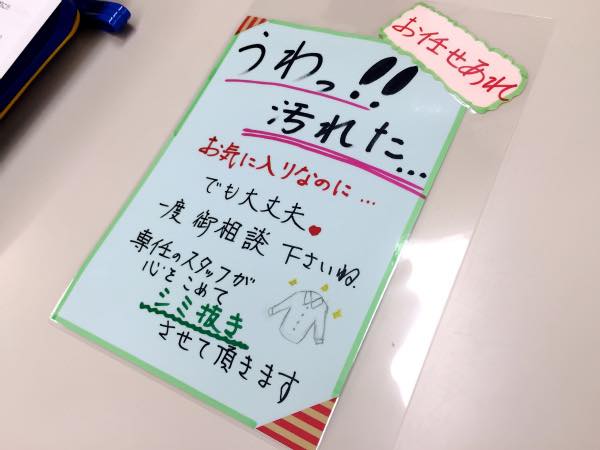 お任せあれ
うわっ!!
汚れた…
お気に入りなのに…
でも大丈夫
一度 御相談 下さいね.
専任のスタッフが
心をこめて
シミ抜き
させて頂きます